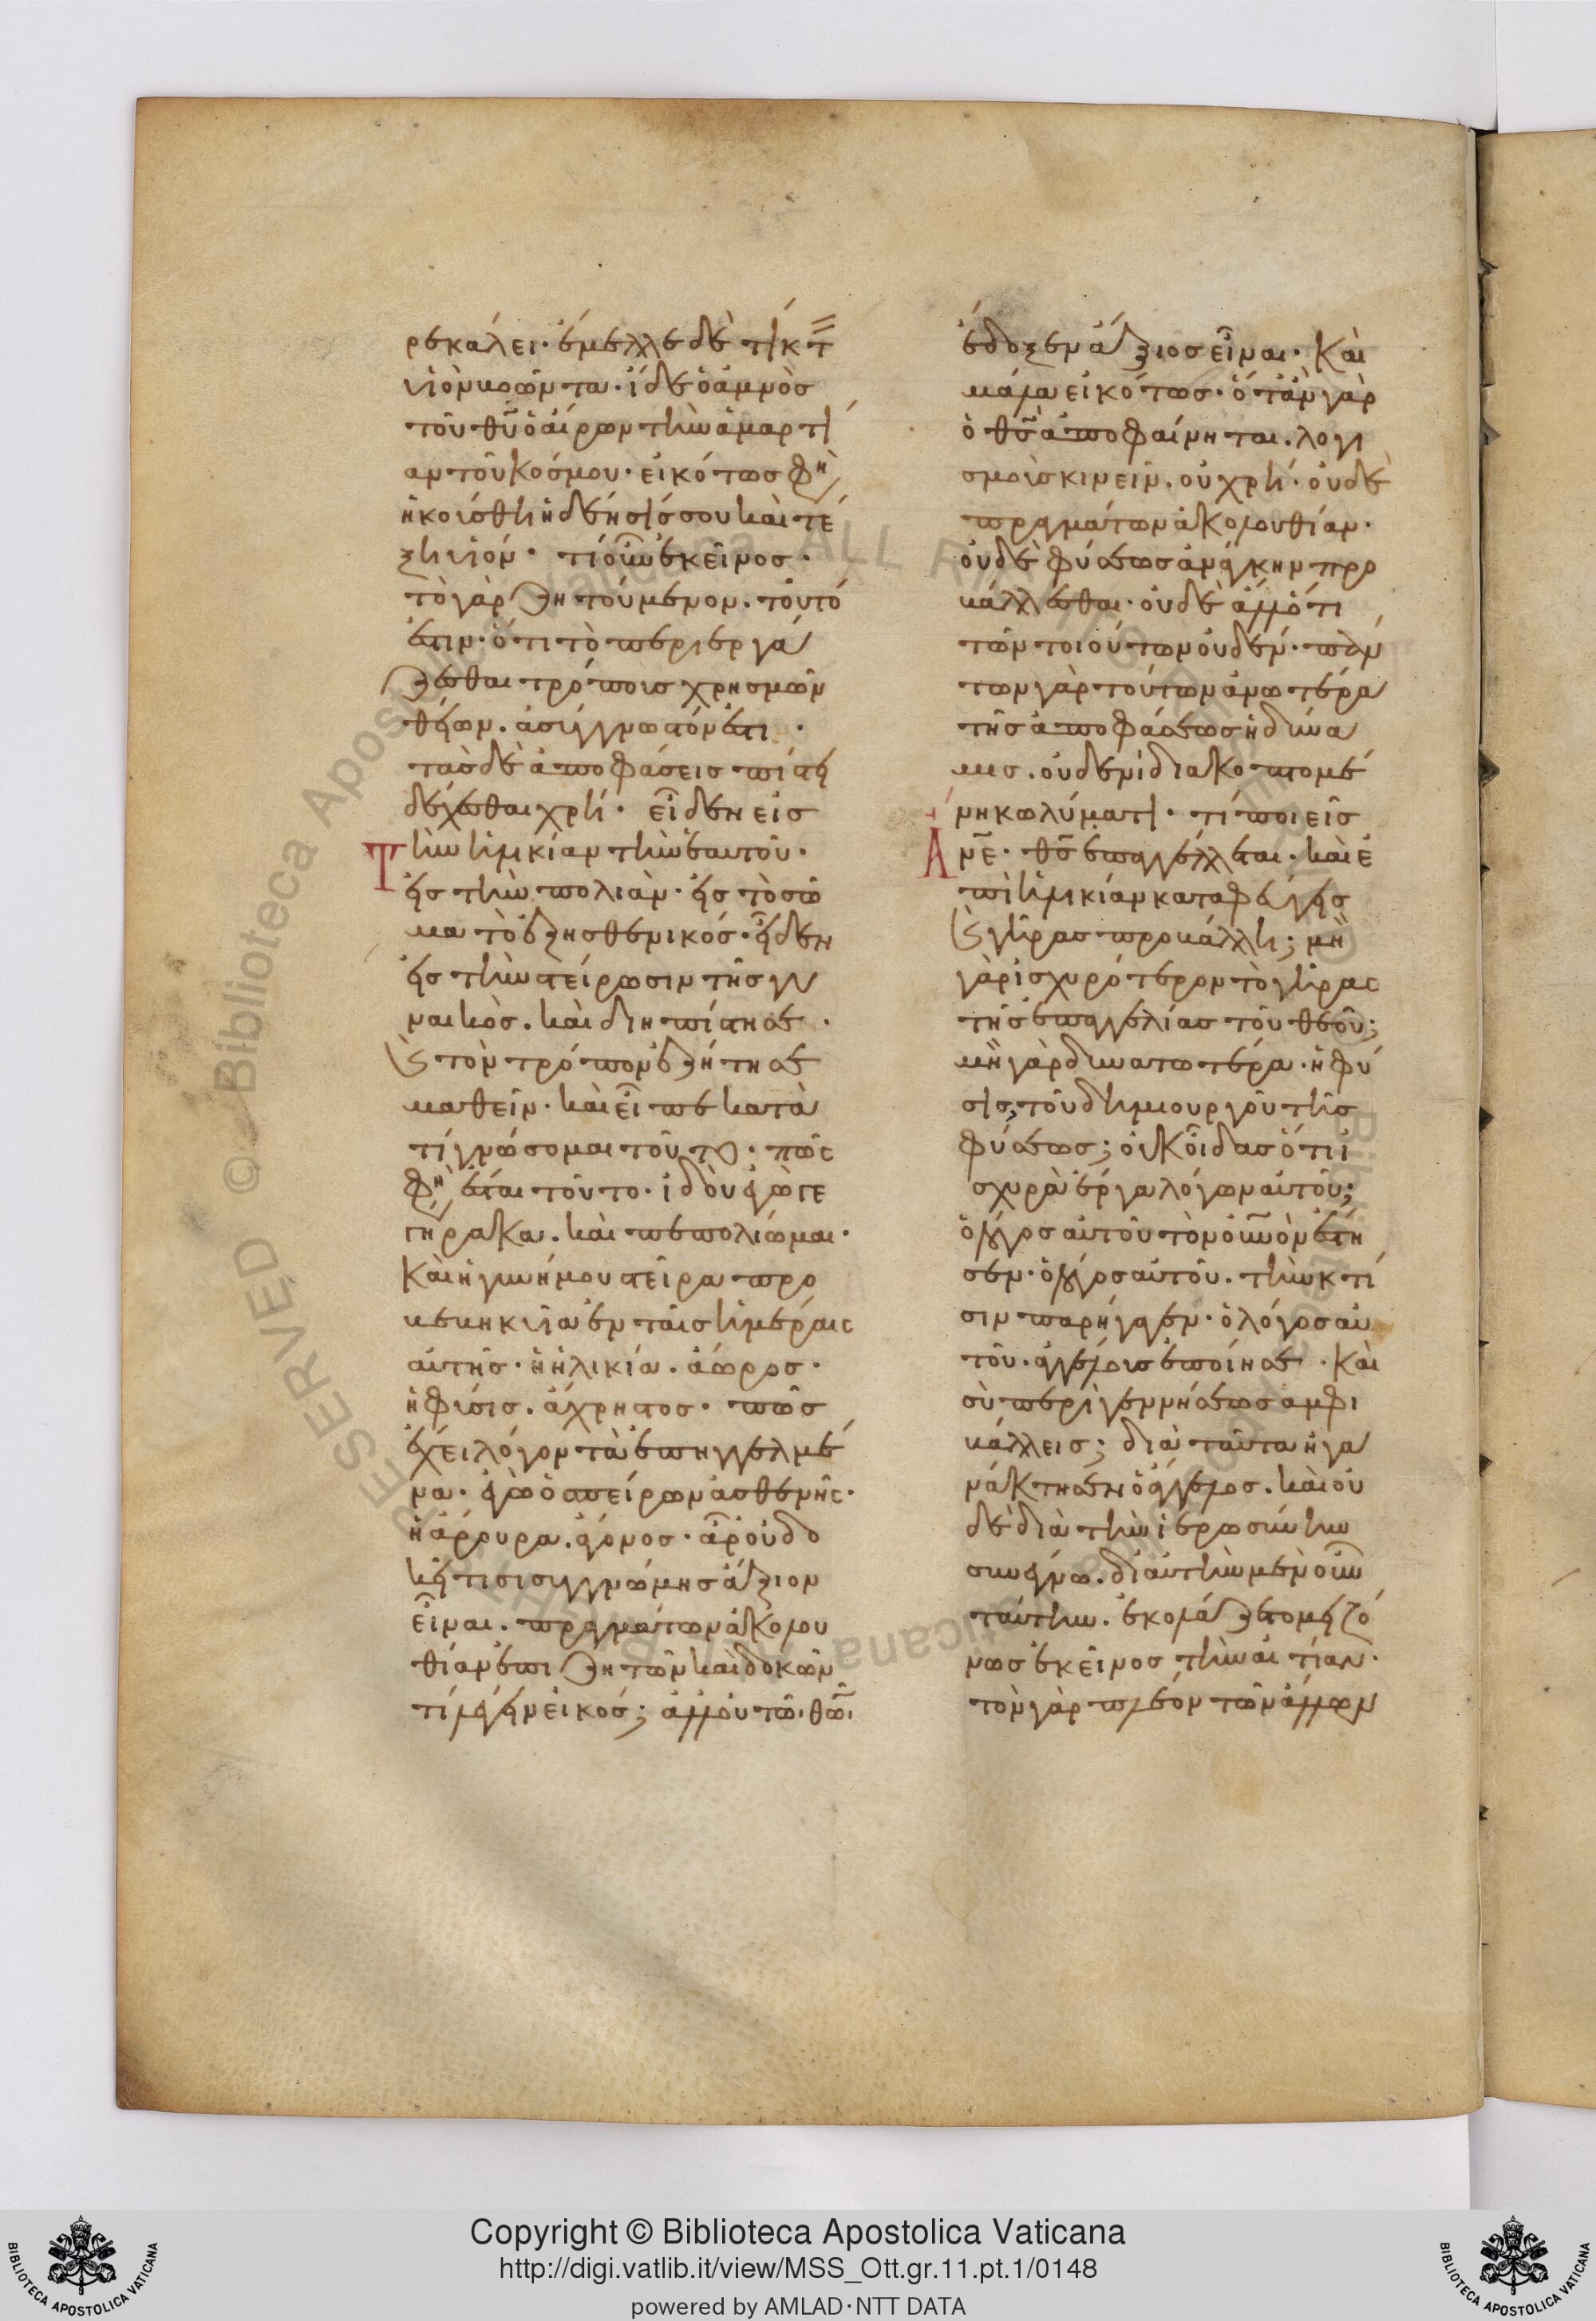 ρεκαλει· ἔμελλε δὲ τίκτ
υἱὸν βοῶντα· ἴδε ὁ ἀμνὸσ
τοῦ θῦ ὁ αἴρων τὴν ἁμαρτί
αν τοῦ κόσμου· εἰκότωσ φη
ἠκούσθη ἡ δέησίσ σου καὶ τέ
ξη υἱόν· τί οὖν ἐκεῖνοσ·
τὸ γὰρ ζητούμενον. τοῦτό
ἐστιν· ὅτι τὸ περιεργά
ζεσθαι τρόποισ χρησμῶν
θείων. ἀσύγγνωστόν ἐστι·
τὰσ δὲ ἀποφάσεισ πίστει
δέχεσθαι χρή· εἶδεν εἰσ
τὴν ἡλικίαν τὴν ἑαυτοῦ·
εἰσ τὴν πολιὰν· εἰσ τὸ σῶ
μα τὸ ἐξησθενικόσ· εἶδεν
εἰσ τὴν στείρωσιν τῆσ γυ
ναικὸσ. καὶ διηπίστησε·
καὶ τὸν τρόπον ἐζήτησε
μαθεῖν· καὶ εἶπε κατὰ
τί γνώσομαι τοῦτο· πῶσ
φη ἔσται τοῦτο· ἰδοὺ ἐγώ τε
γήρακα. καὶ πεπολίωμαι·
καὶ ἡ γυνή μου στεῖρα προ
βεβηκυῖα ἐν ταῖσ ἡμέραισ
αὐτῆσ· ἡ ἡλικία. ἄωροσ·
ἡ φύσισ. ἄχρηστοσ· πῶσ
ἔχει λόγον τὰ ἐπηγγελμέ
να· ἐγὼ ὁ σπείρων ἀσθενὴσ·
ἡ ἄρουρα. ἄγονοσ· ἆρ οὐ δο
κεῖ τισι συγγνώμησ ἄξιον
εἶναι. πραγμάτων ἀκολου
θίαν ἐπιζητῶν καὶ δοκῶν
τι λέγειν εἰκόσ; ἀλλ οὐ τῶ θῶ
ἔδοξεν ἄξιοσ εἶναι· καὶ
μάλα εἰκότωσ· ὅταν γὰρ
ὁ θσ ἀποφαίνηται. λογι
σμοὺσ κινεῖν. οὐ χρή· οὐδὲ
πραγμάτων ἀκολουθίαν·
οὐδὲ φύσεωσ ἀνάγκην προ
βάλλεσθαι· οὐδὲ ἄλλό τι
τῶν τοιούτων οὐδέν· πάν
των γὰρ τούτων ἀνωτέρα
τῆσ ἀποφάσεωσ ἡ δύνα
μισ. οὐδενὶ διακοπτομέ
νη κωλύματι· τί ποιεῖσ
ἄνε· θσ ἐπαγγέλλεται. καὶ ἐ
πὶ ἡλικίαν καταφεύγεισ
καὶ γῆρασ προβάλλη; μὴ
γὰρ ἰσχυρότερον τὸ γῆρασ
τῆσ ἐπαγγελίασ τοῦ θεοῦ;
μὴ γὰρ δυνατωτέρα· ἡ φύ
σισ, τοῦ δημιουργοῦ τῆσ
φύσεωσ; οὐκ οἶδασ ὅτι ἰ
σχυρὰ ἔργα λόγων αὐτοῦ;
ὁ λόγοσ αὐτοῦ τὸν οὐνὸν ἔστη
σεν· ὁ λόγοσ αὐτοῦ. τὴν κτί
σιν παρήγαγεν· ὁ λόγοσ αὐ
τοῦ. ἀγγέλουσ ἐποίησε· καὶ
σὺ περὶ γεννήσεωσ ἀμφι
βάλλεισ; διὰ ταῦτα ἠγα
νάκτησεν ὁ ἄγγελοσ. καὶ οὐ
δὲ διὰ τὴν ἱερωσύνην
συνέγνω. δι αὐτὴν μὲν οὖν
ταύτην. ἐκολάζετο μειζό
νωσ ἐκεῖνοσ τὴν αἰτίαν·
τὸν γὰρ πλέον τῶν ἄλλων